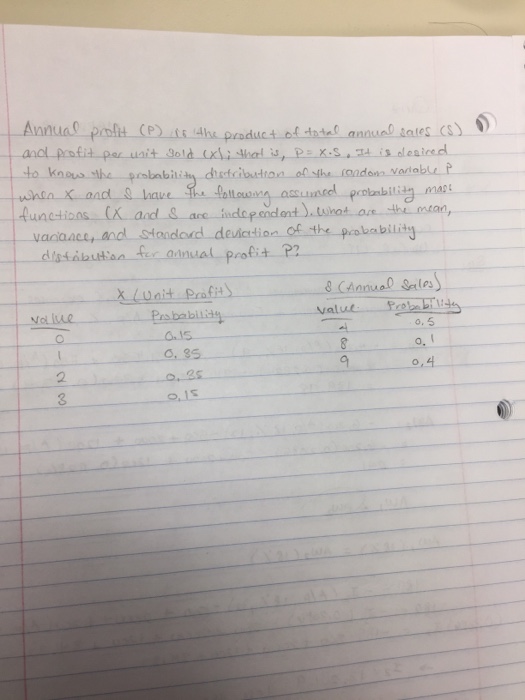 Annual profit (P) is the product of total annual sales (S)
and profit per unit sold (X); that is, P = X·S. It is desired
to know the probability distribution of the random variable P
when X and S have the following assumed probability mass
functions (X and S are independent). What are the mean,
variance, and standard deviation of the probability
distribution for annual profit P?
X (Unit Profit) S (Annual Sales)
value Probability value Probability
0 0.15 4 0.5
1 0.35 8 0.1
2 0.35 9 0.4
3 0.15